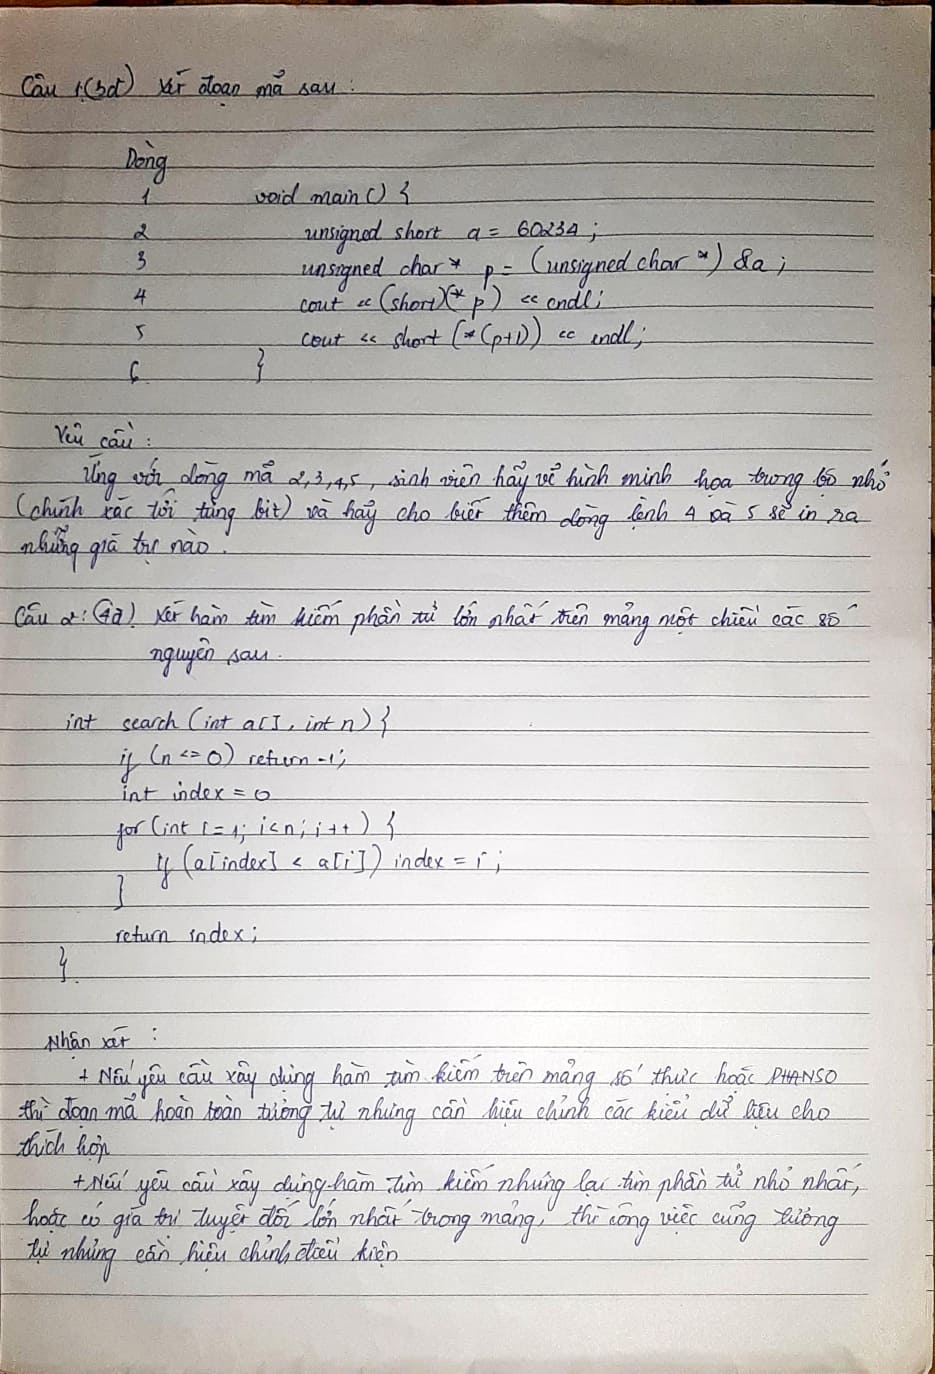 Câu 1(3đ) Xét đoạn mã sau:
Dòng
1 void main() {
2 unsigned short a = 60234;
3 unsigned char* p = (unsigned char *) &a;
4 cout << (short)(*p) << endl;
5 cout << short (*(p+1)) << endl;
6 }
Yêu cầu:
Ứng với dòng mã 2,3,4,5, sinh viên hãy vẽ hình minh họa trong bộ nhớ
(chính xác tới từng bit) và hãy cho biết thêm dòng lệnh 4 và 5 sẽ in ra
những giá trị nào.
Câu 2: (4đ) Xét hàm tìm kiếm phần tử lớn nhất trên mảng một chiều các số
nguyên sau.
int search (int a[], int n) {
if (n <= 0) return -1;
int index = 0
for (int i = 1; i<n; i++) {
if (a[index] < a[i]) index = i;
}
return index;
}.
Nhận xét:
+ Nếu yêu cầu xây dựng hàm tìm kiếm trên mảng số thực hoặc PHANSO
thì đoạn mã hoàn toàn tương tự nhưng cần hiệu chỉnh các kiểu dữ liệu cho
thích hợp
+ Nếu yêu cầu xây dựng hàm tìm kiếm nhưng lại tìm phần tử nhỏ nhất,
hoặc có giá trị tuyệt đối lớn nhất trong mảng, thì công việc cũng tương
tự nhưng cần hiệu chỉnh điều kiện